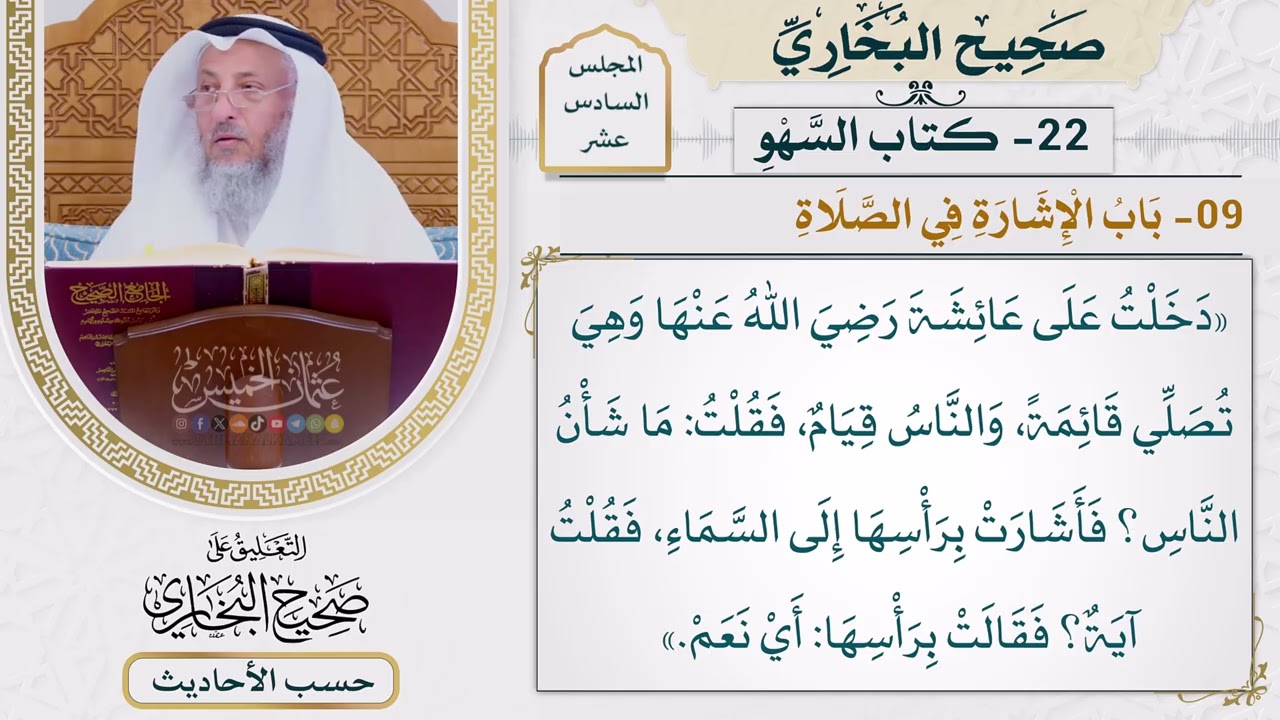 صَحِيح البُخَارِيِّ
22- كتاب السَّهْوِ
المجلس
السادس
عشر
09- بَابُ الْإِشَارَةِ فِي الصَّلَاةِ
«دَخَلْتُ عَلَى عَائِشَةَ رَضِيَ اللهُ عَنْهَا وَهِيَ
تُصَلِّي قَائِمَةً، وَالنَّاسُ قِيَامٌ، فَقُلْتُ: مَا شَأْنُ
النَّاسِ؟ فَأَشَارَتْ بِرَأْسِهَا إِلَى السَّمَاءِ، فَقُلْتُ
آيَةٌ؟ فَقَالَتْ بِرَأْسِهَا: أَيْ نَعَمْ.»
الجامع الصحيح
عُثمان الخميس
التَّعْلِيقُ عَلَى
صَحِيح البُخَارِي
حسب الأحاديث